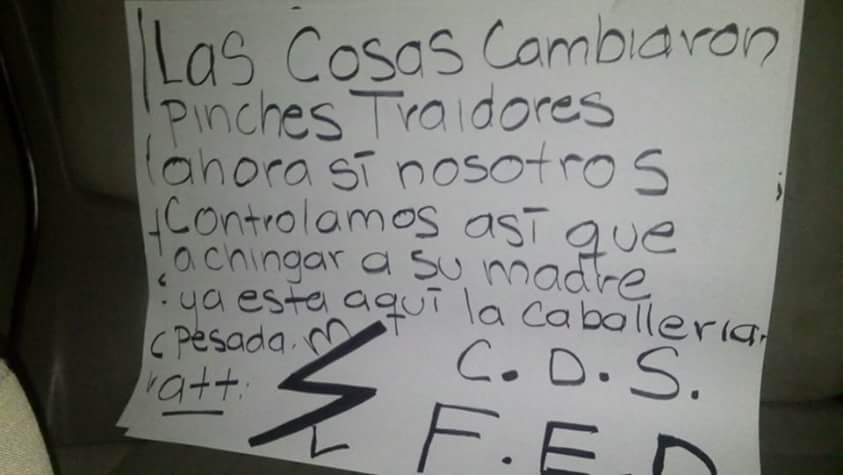 Las Cosas Cambiaron
pinches Traidores
ahora sí nosotros
Controlamos así que
a chingar a su madre
ya esta aquí la caballeria
pesada. M
att: C.D.S.
L F.E.D